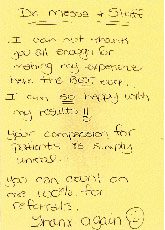 Dr. Mesos & Staff
I can not thank
you all enough for
making my experience
here the BEST ever.
I am so happy with
my results!!
Your compassion for
patients is simply
unreal.
You can count on
me 100% for
referrals.
Thanx again